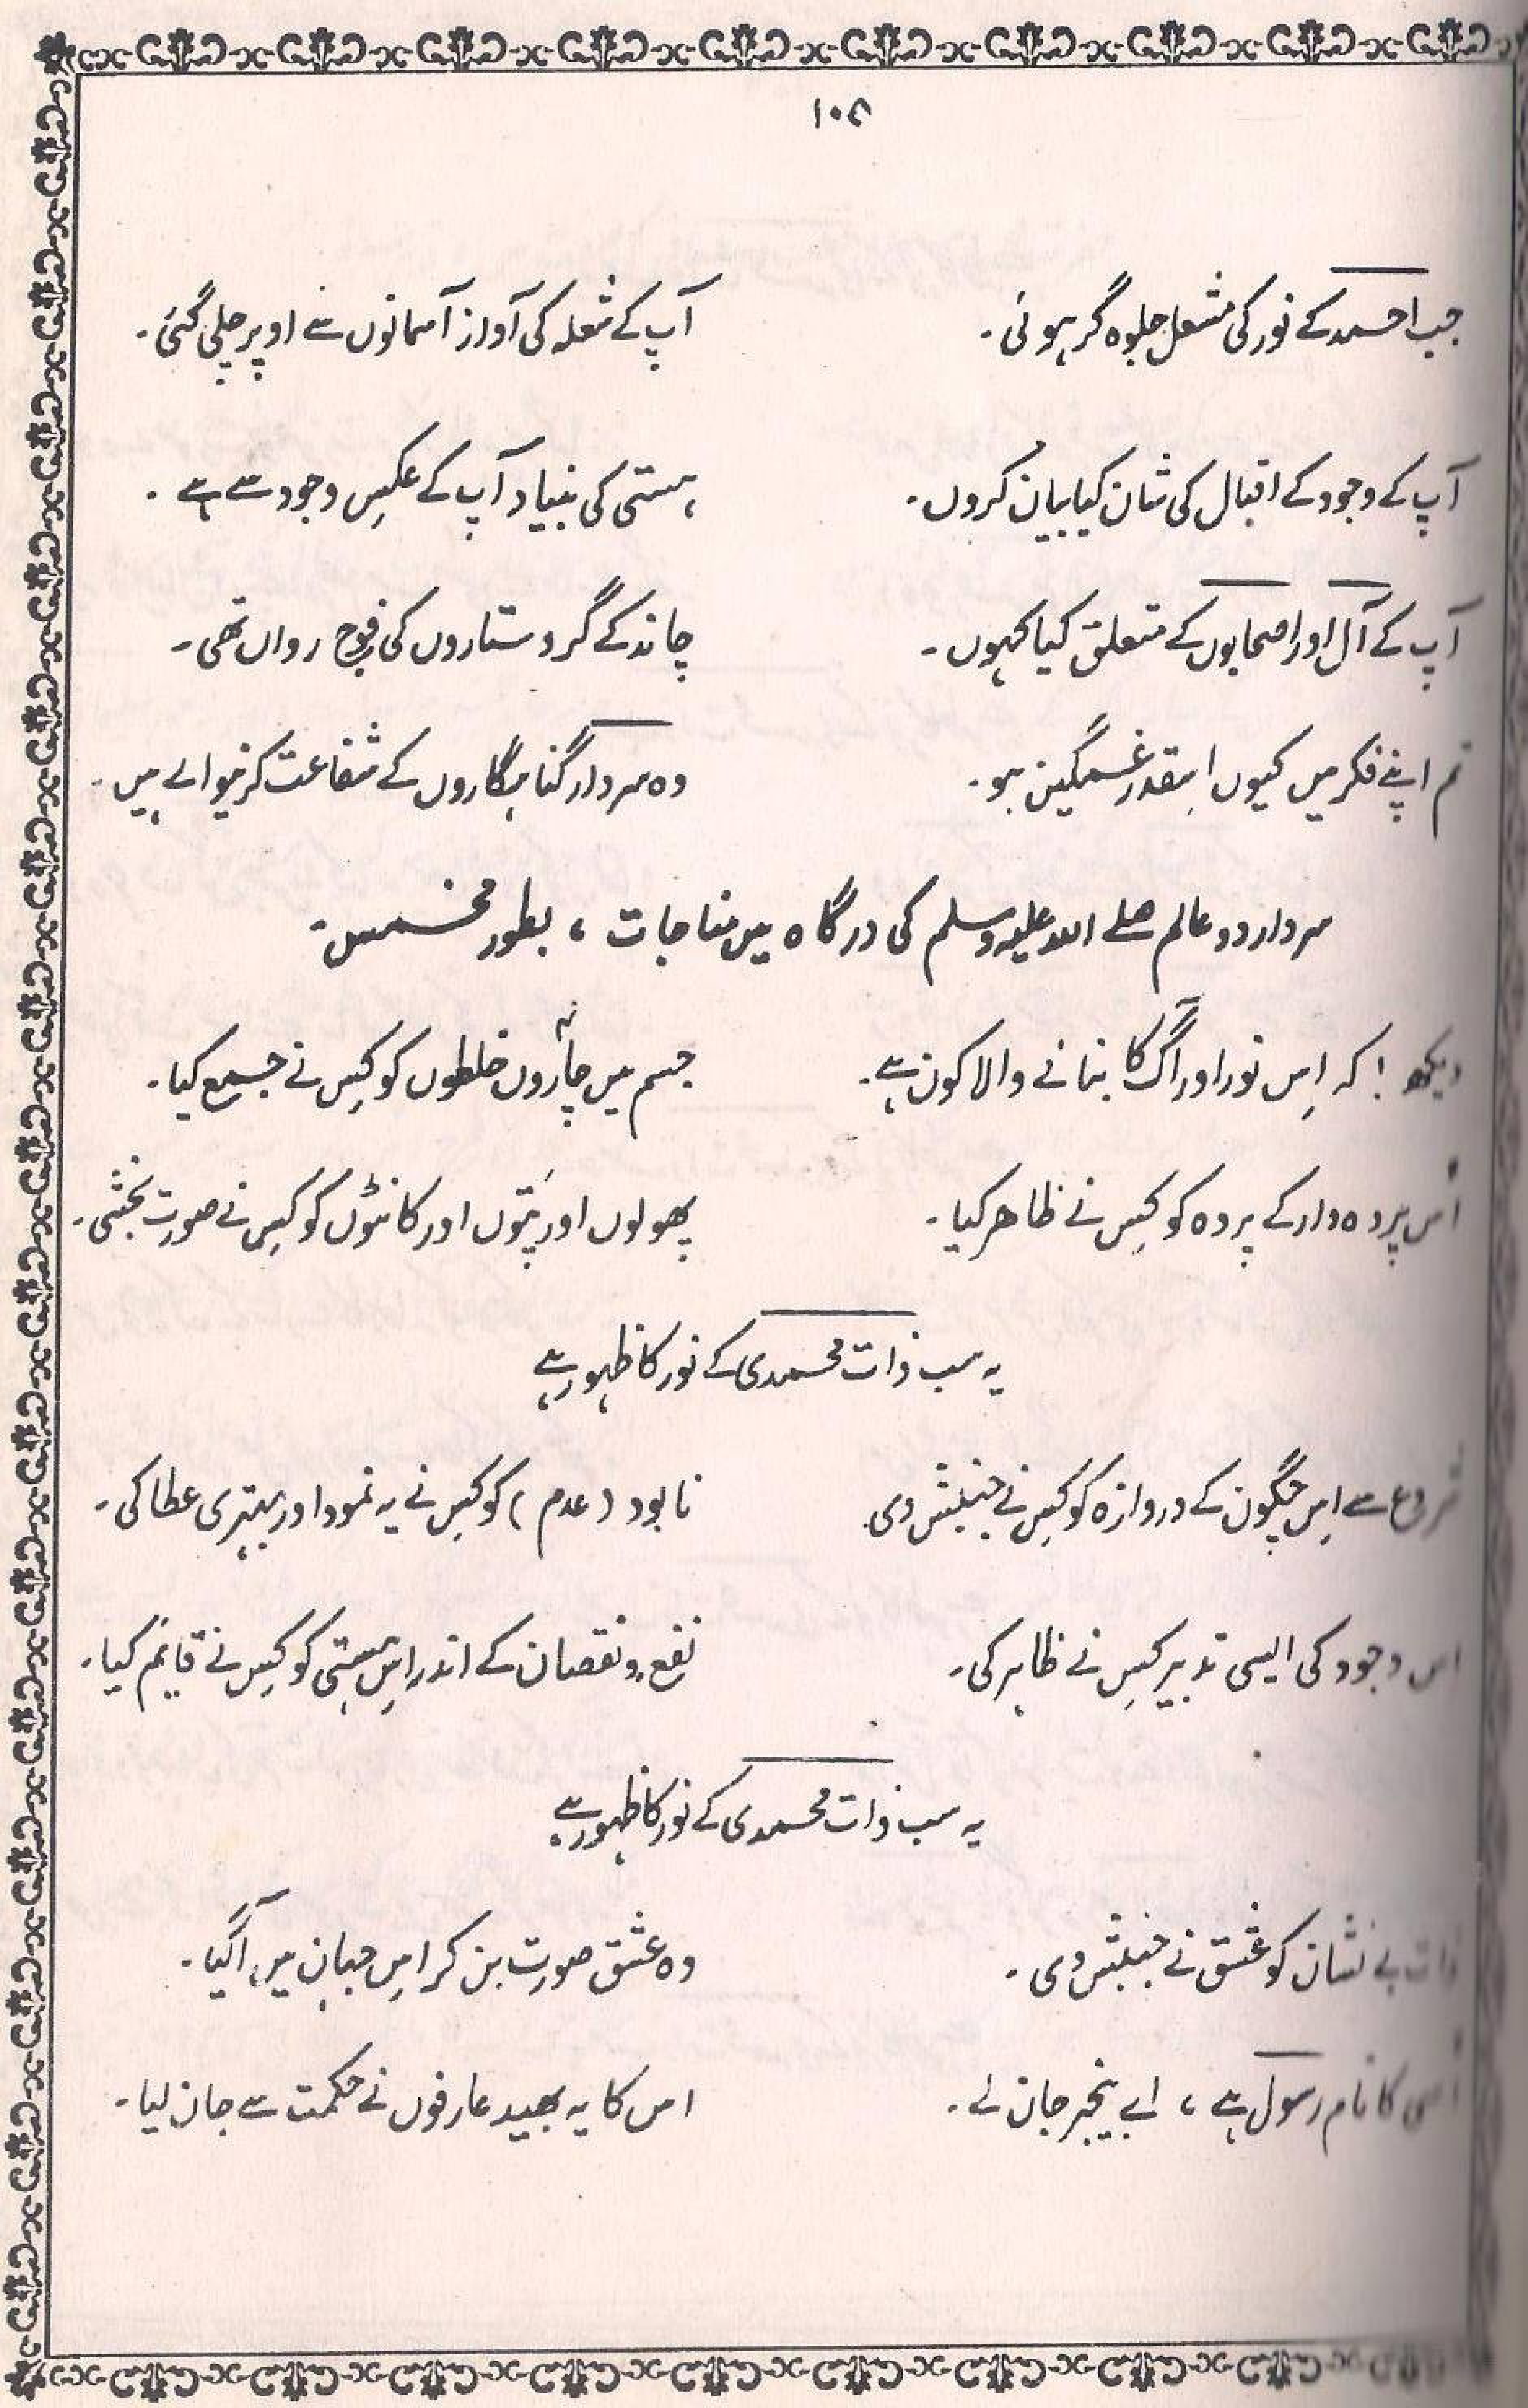 ۱۰۵
جب احمد کے نور کی مشعل جلوہ گر ہوئی۔ آپ کے شعلہ کی آواز آسمانوں سے اوپر چلی گئی۔
آپ کے وجود کے اقبال کی شان کیا بیان کروں۔ ہستی کی بنیاد آپ کے عکسِ وجود سے ہے۔
آپ کے آل اور اصحابوں کے متعلق کیا کہوں۔ چاند کے گرد ستاروں کی فوج رواں تھی۔
تم اپنے فکر میں کیوں اسقدر غمگین ہو۔ وہ سردار گناہگاروں کے شفاعت کرنیوالے ہیں۔
سردار دو عالم صلے اللہ علیہ وسلم کی درگاہ میں مناجات، بطور مخمس۔
دیکھ! کہ اِس نور اور آگ کا بنانے والا کون ہے۔ جسم میں چاروں خلطوں کو کِس نے جمع کیا۔
اُس پردہ دار کے پردہ کو کِس نے ظاھر کیا۔ پھولوں اور پَتّوں اور کانٹوں کو کِس نے صورت بخشی۔
یہ سب ذات محمدی کے نور کا ظہور ہے
شروع سے اِس چگون کے دروازہ کو کِس نے جنبش دی۔ نابود (عدم) کو کِس نے یہ نمود اور بہتری عطا کی۔
اس وجود کی ایسی تدبیر کِس نے ظاہر کی۔ نفع و نقصان کے اندر اِس ہستی کو کِس نے قایٔم کیا۔
یہ سب ذات محمدی کے نور کا ظہور ہے۔
ذات بے نشان کو عشق نے جنبش دی۔ وہ عشق صورت بن کر اِس جہان میں آگیا۔
اُسی کا نام رسول ہے، اے بیخبر جان لے۔ اس کا یہ بھید عارفوں نے حکمت سے جان لیا۔